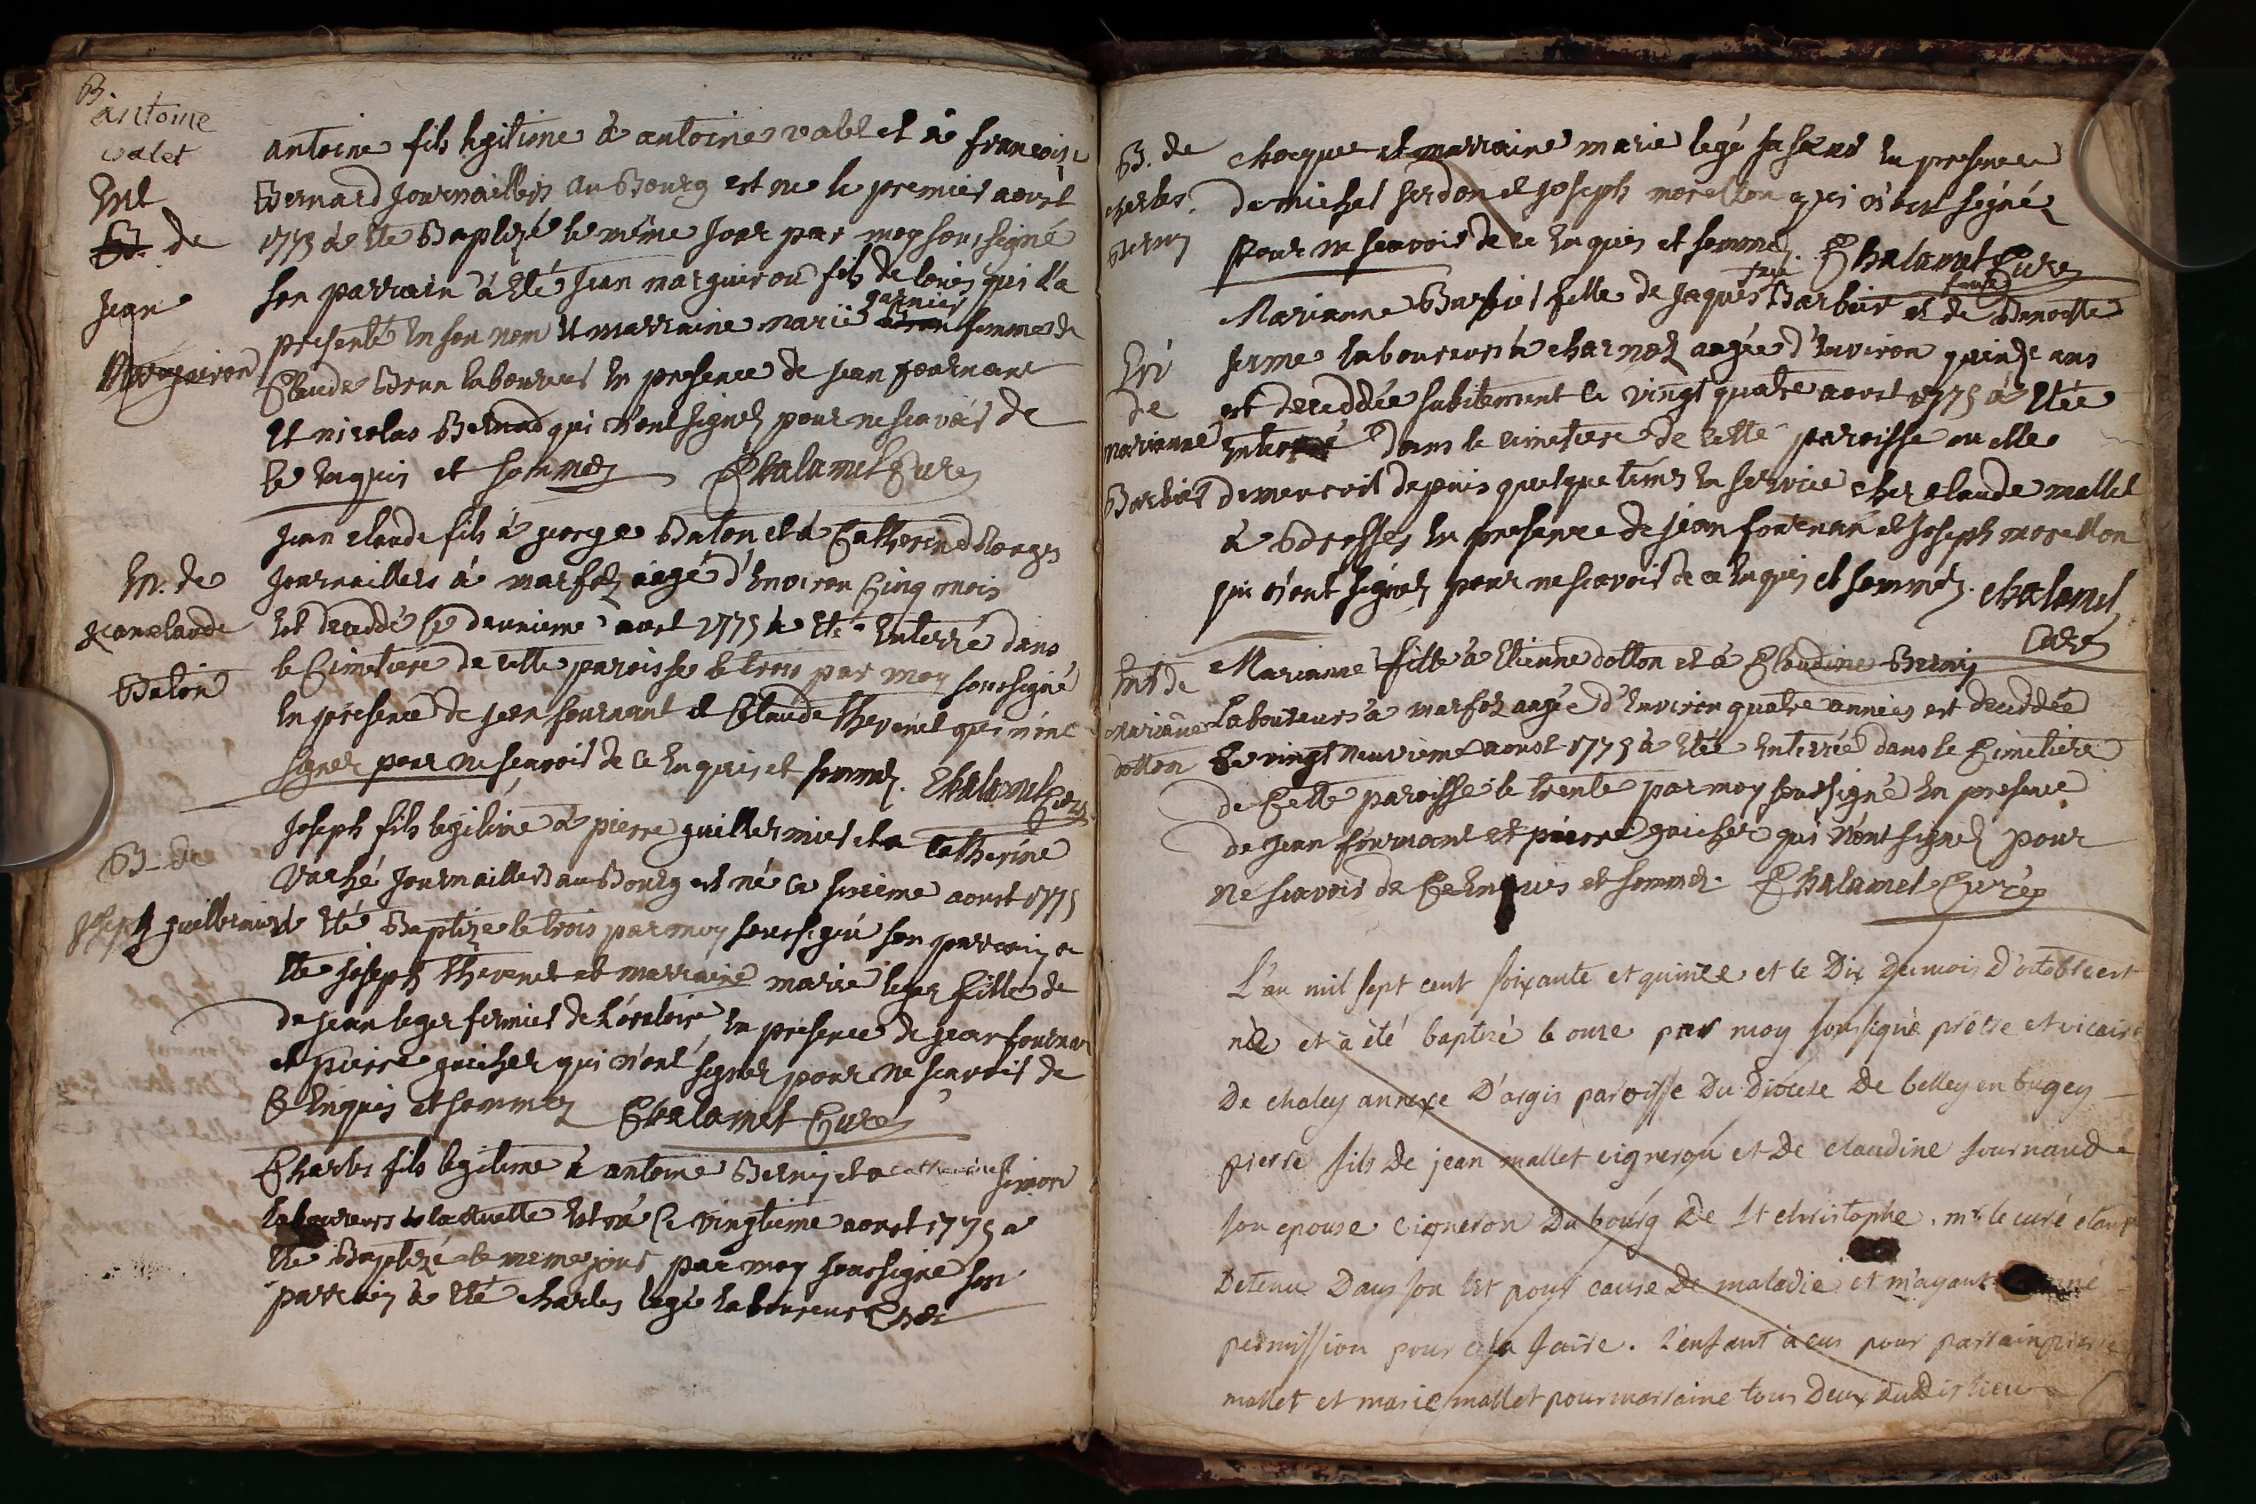 B
antoine
valet
Ent
B. de
jean
Marguiron
antoine fils legitime à antoine valet et à françoise
Bernard journailliers au Bourg est né le premier aoust
1775 à été Baptizé le même jour par moy soussigné
son parrain à été jean marguirou fils de louis qui l'a
présenté en son nom et marraine marie garnier femme de
Claude Brun laboureur en presence de jean fournant
et nicolas Bernard qui n'ont signez pour ne scavoir de
ce enquis et sommez Chalamel Curé
En. de
jean claude
Baton
jean claude fils à george Baton et à Catherine
journailliers à marfoz aagé d'environ Cinq mois
est deceddé le deuxième aoust 1775 à été enterré dans
le Cimetiere de cette paroisse le trois par moy soussigné
en presence de jean fournant et Claude thevenet qui n'ont
signez pour ne scavoir de ce enquis et sommez. Chalamel Curé
B. de
joseph guillermiet
joseph fils legitime à pierre guillermiet et à Catherine
Vaché journailliers au Bourg est né le sixième aoust 1775
à été Baptizé le trois par moy soussigné son parrain a
été joseph thevenet et marraine marie leger fille de
de jean leger fermier de en présence de jean fournant
et pierre guichet qui n'ont signez pour ne scavoir de
Ce enquis et sommez Chalamel Curé
Charles fils legitime à antoine Berny et à catherine simon
laboureurs est né le vingtième aoust 1775 a
été Baptizé le meme jour par moy soussigné son
parrain à été charles legé laboureur Chez
B. de
charles
Berny
chocque et marraine marie legé sa sœur en presence
de michel et joseph morellon qui n'ont signé
pour ne scavoir de ce enquis et sommez Chalamel Curé
En
de
marianne
Barbier
Marianne Barbier fille de jaques Barbier et de Benoitte
laboureurs à charnoz aagée d'environ quinze ans
est deceddée subitement le vingt quatre aoust 1775 à étée
enterré dans le cimetiere de cette paroisse ou elle
demeuroit depuis quelque tems en service chez claude mallet
à en presence de jean fournant et joseph morellon
qui n'ont signez pour ne scavoir de ce enquis et sommez. chalamel
Curé
Ent de
Marianne
dotton
Marianne fille à Etienne dotton et à Claudine Berny
Laboureurs à marfoz aagée d'environ quatre années est deceddée
Le vingt neuvieme aoust 1775 à étée enterrée dans le Cimetiere
de Cette paroisse le trente par moy soussigné en presence
de jean fournant et pierre guichet qui n'ont signez pour
ne scavoir de Ce enquis et sommez. Chalamel Curé
L'an mil sept cent soixante et quinze et le Dix du mois D'octobre est
né et à été baptizé le onze par moy soussigné prêtre et vicaire
De chaley annexe D'argis paroisse Du Diocese De belley en bugey
pierre fils De jean mallet vigneron et De claudine fournand
son epouse vigneron Du bourg De St christophe. mr le curé etant
Detenu Dans son lit pour cause De maladie et m'ayant
permission pour cela faire. L'enfant à eu pour parrain pierre
mallet et marie mallet pour marraine tous Deux dudit lieu